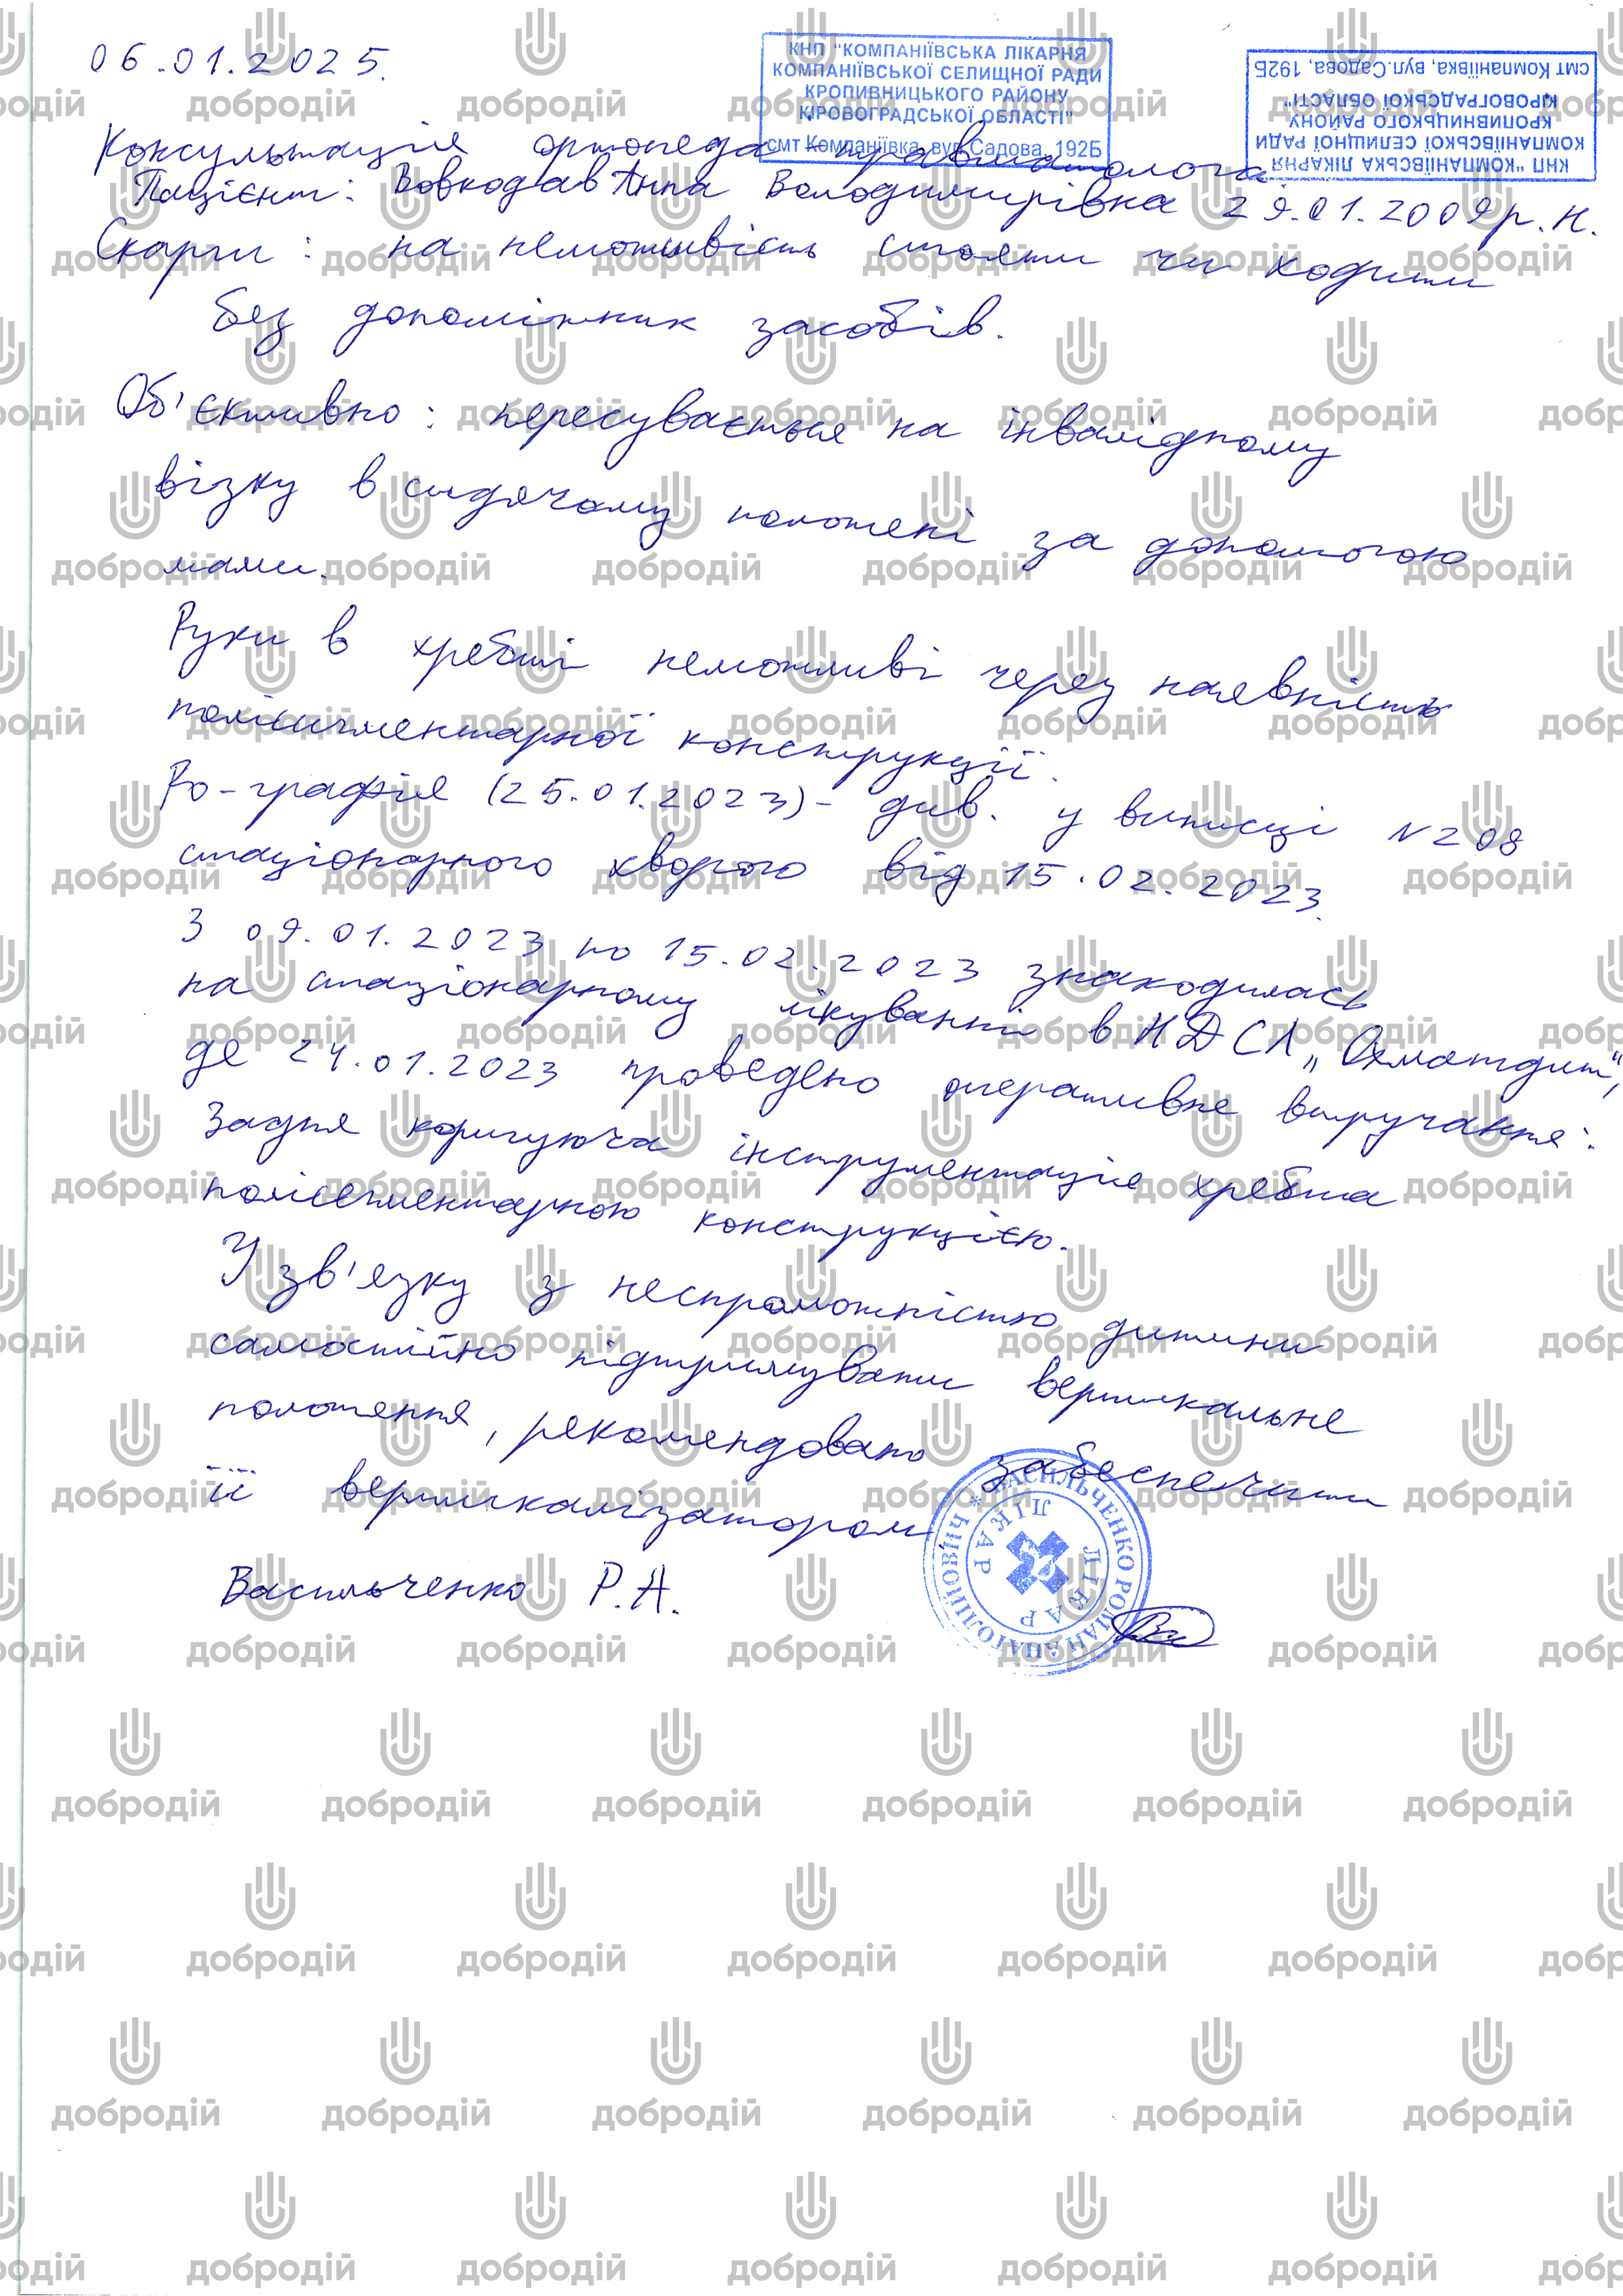 06.01.2025.
КНП "КОМПАНІЇВСЬКА ЛІКАРНЯ
КОМПАНІЇВСЬКОЇ СЕЛИЩНОЇ РАДИ
КРОПИВНИЦЬКОГО РАЙОНУ
КІРОВОГРАДСЬКОЇ ОБЛАСТІ"
смт Компаніївка, вул.Садова, 192Б
КНП "КОМПАНІЇВСЬКА ЛІКАРНЯ
КОМПАНІЇВСЬКОЇ СЕЛИЩНОЇ РАДИ
КРОПИВНИЦЬКОГО РАЙОНУ
КІРОВОГРАДСЬКОЇ ОБЛАСТІ"
смт Компаніївка, вул.Садова, 192Б
Консультація ортопеда травматолога.
Пацієнт: Вовкодав Анна Володимирівна 29.01.2009р.н.
Скарги: на неможливість стояти чи ходити
без допоміжних засобів.
Об'єктивно: пересувається на інвалідному
візку в сидячому положені за допомогою
мами.
Рухи в хребті неможливі через наявність
полісигментарної конструкції.
Ро-графія (25.01.2023)- див. у виписці N208
стаціонарного хворого від 15.02.2023.
З 09.01.2023 по 15.02.2023 знаходилась
на стаціонарному лікуванні в НДСЛ „Охматдит",
де 24.01.2023 проведено оперативне втручання:
Задня коригуюча інструментація хребта
полісегментарною конструкцією.
У зв'язку з неспроможністю дитини
самостійно підтримувати вертикальне
положення, рекомендовано забеспечити
її вертикалізатором.
Васильченко Р.А.
ВАСИЛЬЧЕНКО РОМАН АНАТОЛІЙОВИЧ *
ЛІКАР
ЛІКАР
добродій